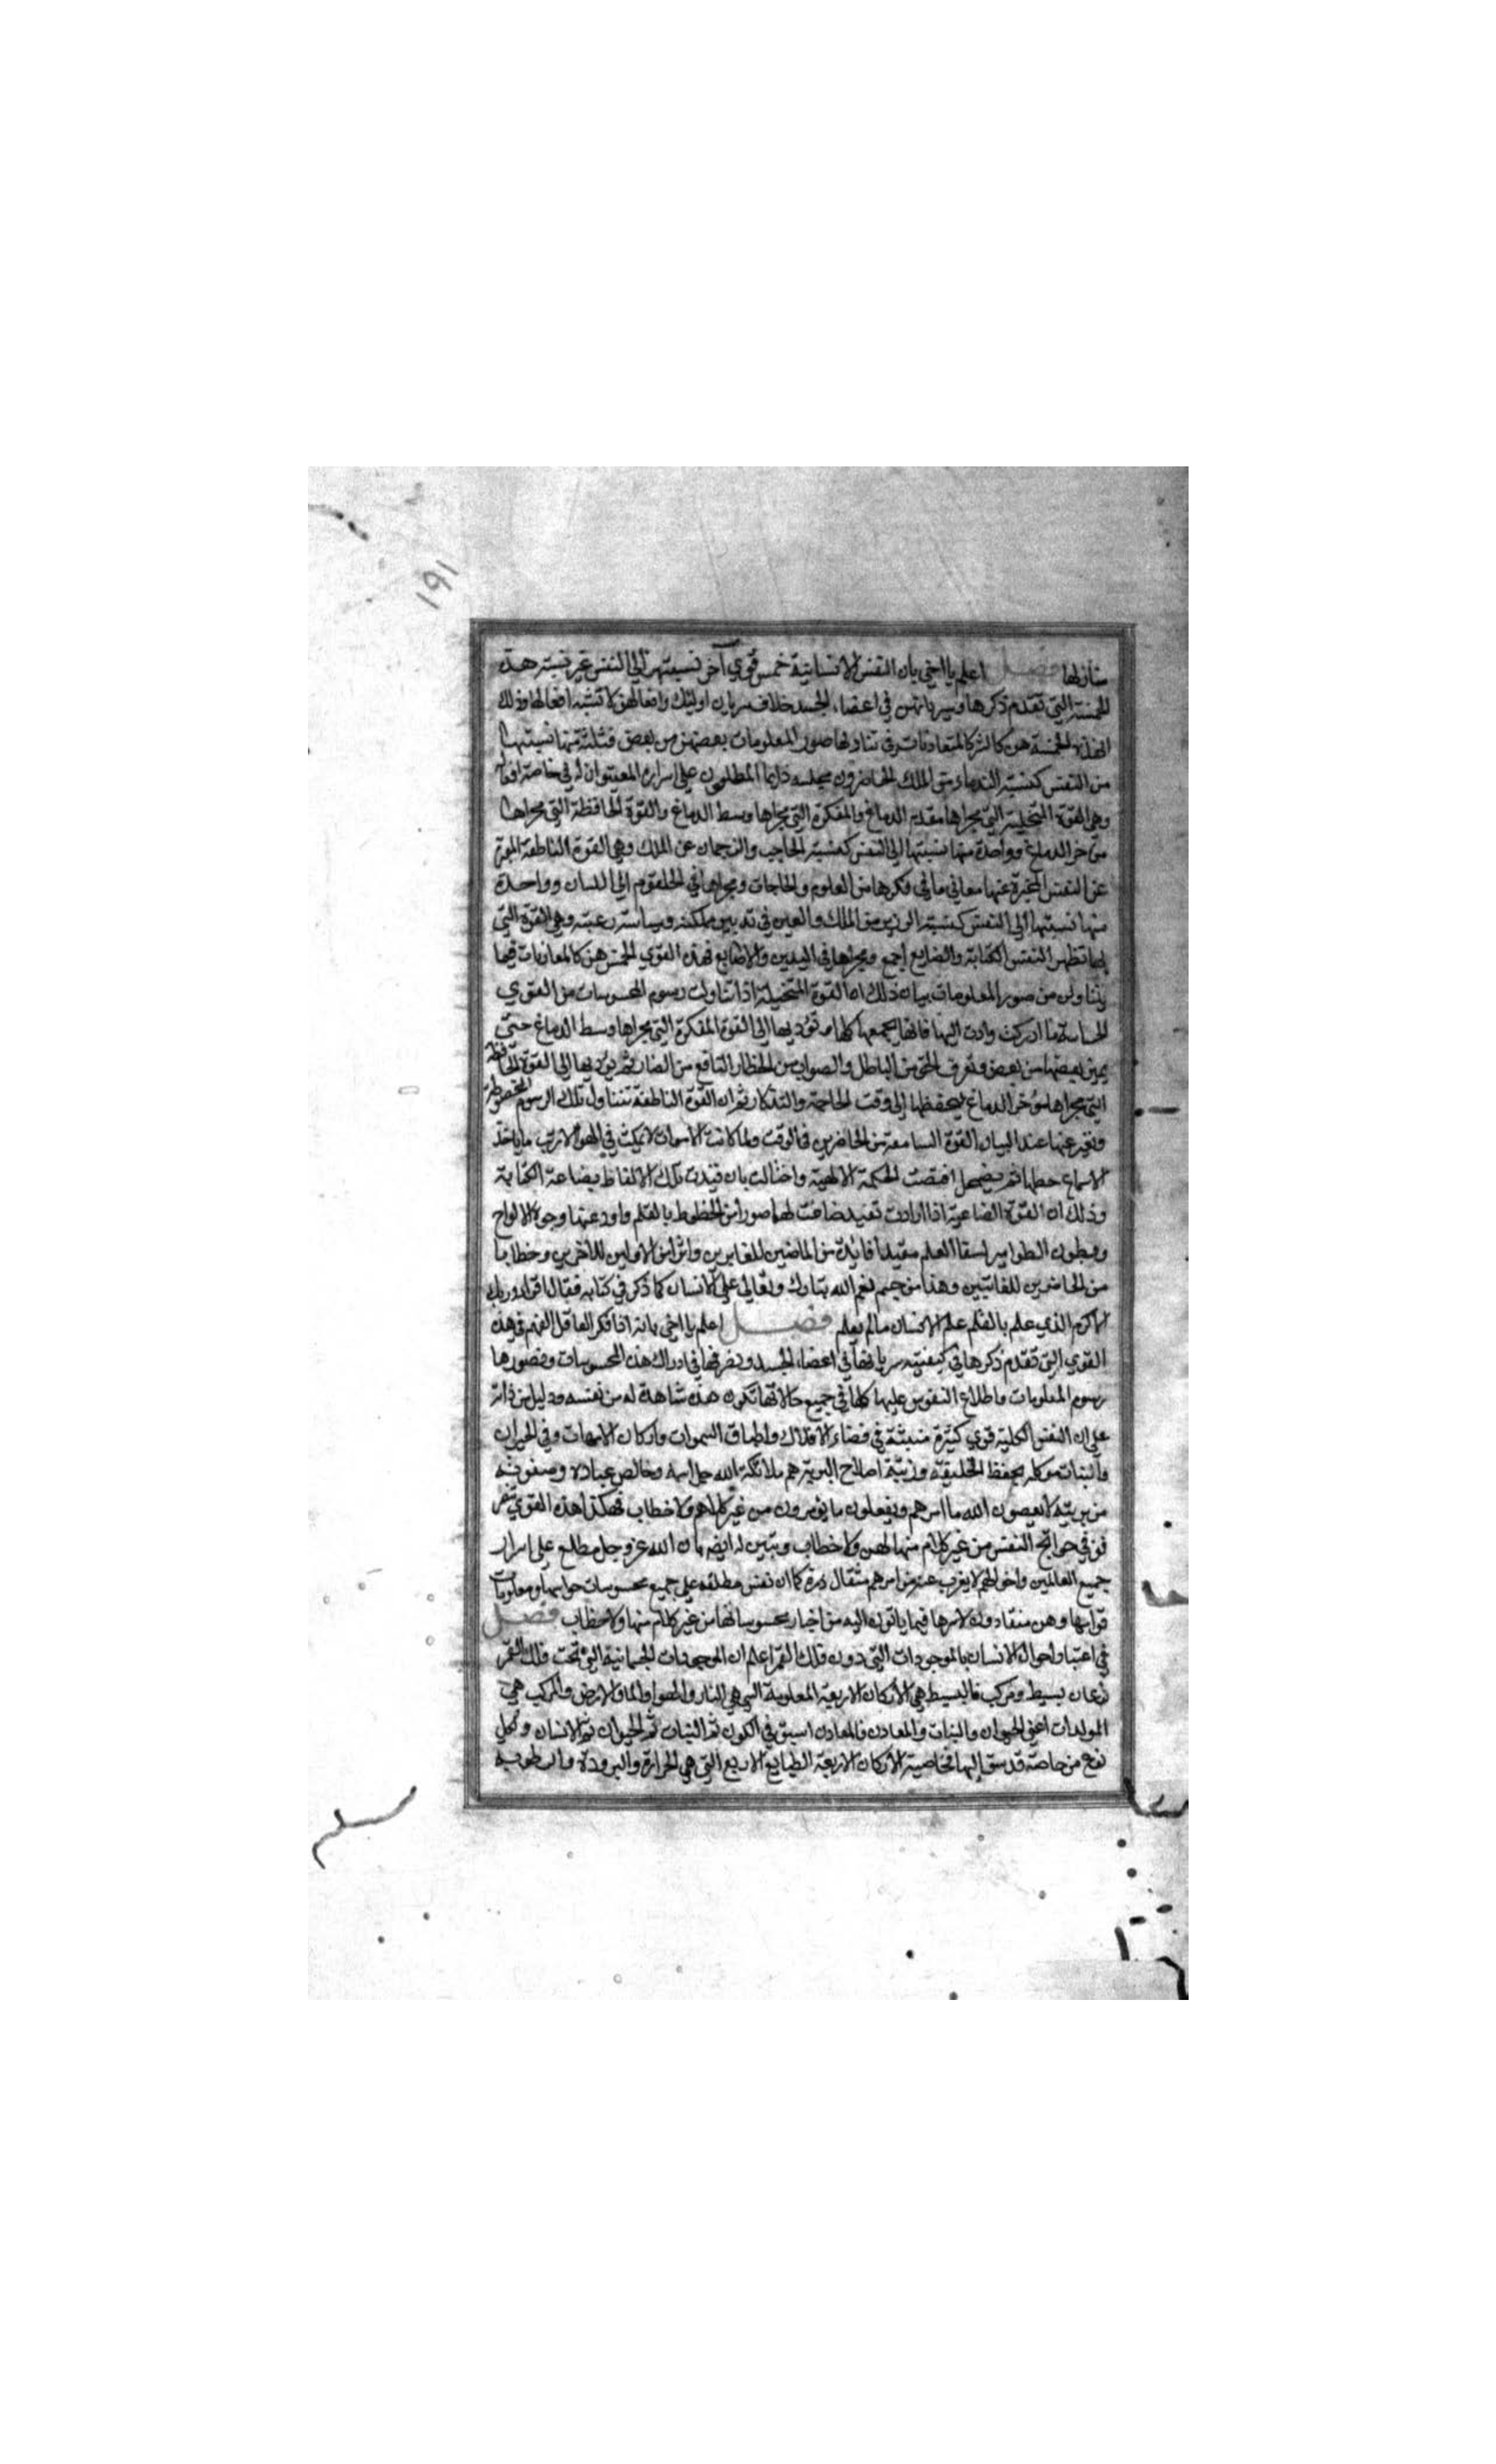 ١٩١
منازلها فصل اعلم يا اخي بان النفس الانسانية خمس قوى آخر نسبتهن الى النفس غير نسبته هذه
الخمسة التي تقدم ذكرها وسريانهن في اعضاء الجسد خلاف سريان اوليك وافعالهن لا تشبه افعالها وذلك
ان هذه الخمسة هن كالشركا المتعاونات في تناولها صور المعلومات بعضهن من بعض فثلثة منها نسبتها
من النفس كنسبة الندماء من الملك الحاضرون مجلسه دايما المطلعون على اسراره المعينون له في خاصة افعا
وهي القوة المتخيلة التي مجراها مقدم الدماغ والمفكرة التي مجراها وسط الدماغ والقوة الحافظة التي مجراها
موخر الدماغ وواحدة منها نسبتها الى النفس كنسبة الحاجب والترجمان عن الملك وهي القوة الناطقة
عن النفس المخبرة عنها معاني ما في فكرها من العلوم والحاجات ومجراها في الحلقوم الى اللسان وواحدة
منها نسبتها الى النفس كنسبة الوزير من الملك والعين في تدبير مملكته وسياسة رعيته وهي القوة التي
بها تظهر النفس الكتابة والصنايع اجمع ومجراها في اليدين والاصابع فهذه القوى الخمس هن كالمعاونات فيما
يتناولن من صور المعلومات بيان ذلك ان القوة المتخيلة اذا تناولت رسوم المحسوسات من القوى
الحساسة ما ادركت وادت اليها فانها تجمعها كلها وتوديها الى القوة المفكرة التي مجراها وسط الدماغ حتى
يميز بعضها من بعض وتعرف الحق من الباطل والصواب من الخطا والنافع من الضار ثم يوديها الى القوة الحافظة
التي مجراها موخر الدماغ ليحفظها الى وقت الحاجة والتذكار ثم ان القوة الناطقة تتناول تلك الرسوم المحفوظة
وتعبر عنها عند البيان القوة السامعة من الحاضرين في الوقت ولما كانت الاصوات لا تمكث في الهوا الا ريث ما ياخذ
الاسماع حظها ثم يضمحل اقتضت الحكمة الالهية واحتالت بان قيدت تلك الالفاظ بصناعة الكتابة
وذلك ان القوة الصناعية اذا ارادت تقييد صاغت لها صورا من الخطوط بالقلم واودعتها وجوه الالواح
وبطون الطوامير لبقا العلم مقيدا فايدة من الماضين للغابرين واثرا من الاولين للاخرين وخطابا
من الحاضرين للغايبين وهذا من جسيم نعم الله تبارك وتعالى على الانسان كما ذكر في كتابه فقال اقرا وربك
الاكرم الذي علم بالقلم علم الانسان ما لم يعلم فصل اعلم يا اخي بانه اذا فكر العاقل الفهم في هذه
القوى التي تقدم ذكرها في كيفية سريانها في اعضاء الجسد وتصرفها في ادراك هذه المحسوسات وتصورها
رسوم المعلومات واطلاع النفوس عليها كلها في جميع حالاتها تكون هذه شاهدة له من نفسه ودليل من ذاته
على ان النفس الكلية قوى كثيرة منبثة في فضاء الافلاك واطباق السموات واركان الامهات وفي الحيوان
والنبات موكلة بحفظ الخليقة اصلاح البرية هم ملائكة الله جل اسمه وخالص عباده وصفوته
من بريته لا يعصون الله ما امرهم ويفعلون ما يومرون من غير كلام ولا خطاب فهكذا هذه القوى تتصر
فون في حوائج النفس من غير كلام منها لهن ولا خطاب وتبين له ايضا بان الله عز وجل مطلع على اسرار
جميع العالمين واحوالهم لا يعزب عنه من امرهم مثقال ذرة كما ان نفس مطلعة على جميع محسوسات حواسها ومعلومات
قواسها وهن منقادون لامرها فيما ياتون اليه من اخبار محسوساتها من غير كلام منها ولا خطاب فصل
في اعتبار احوال الانسان بالموجودات التي دون فلك القمر اعلم ان الموجودات الجسمانية التي تحت فلك القمر
نوعان بسيط ومركب فالبسيط هي الاركان الاربعة المعلومة التي هي النار والهوا والما والارض والمركب هي
المولدات اعني الحيوان والنبات والمعادن فالمعادن اسبق في الكون ثم النبات ثم الحيوان ثم الانسان ولكل
نوع من خاصة قد سبق اليها فخاصية الاركان الاربعة الطبايع الاربع التي هي الحرارة والبرودة والرطوبة